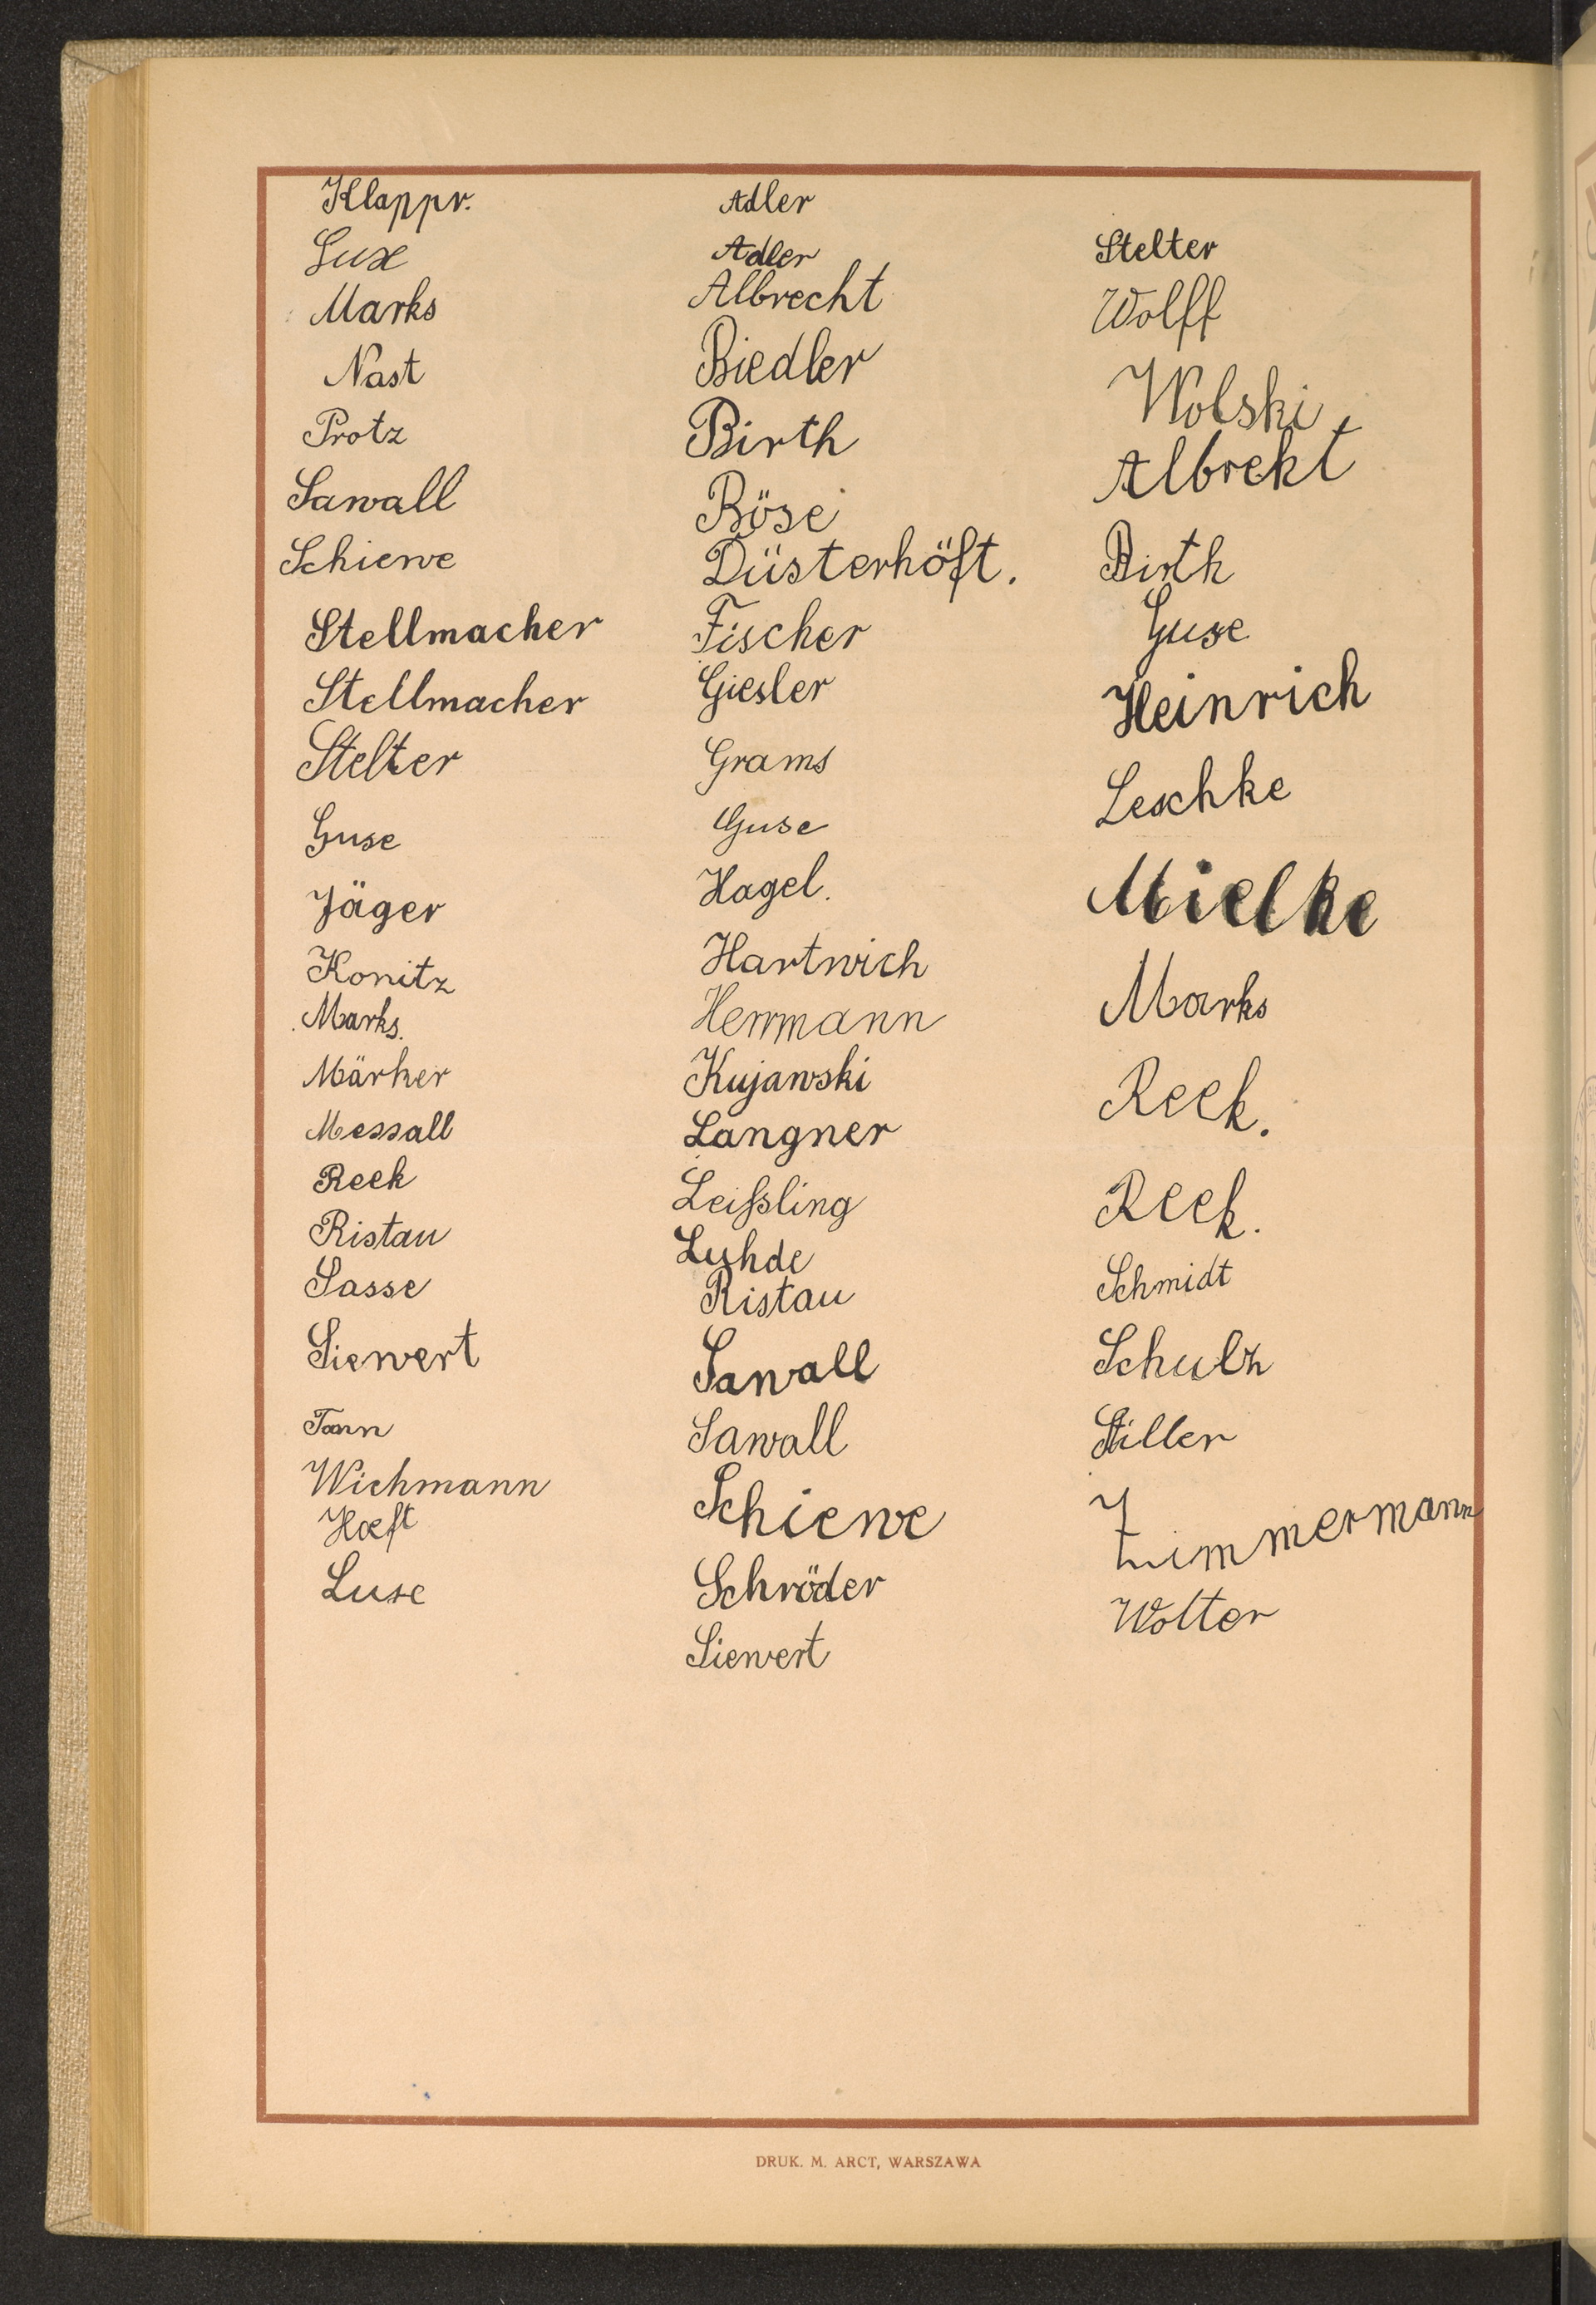 Klappr.
Lux
Marks
Nast
Protz
Sawall
Schiewe
Stellmacher
Stellmacher
Stelter
Guse
Jäger
Konitz
Marks.
Märker
Messall
Reek
Ristau
Sasse
Siewert
Tonn
Wichmann
Hoeft
Luse
Adler
Adler
Albrecht
Biedler
Birth
Böse
Düsterhöft.
Fischer
Giesler
Grams
Guse
Hagel.
Hartwich
Herrmann
Kujawski
Langner
Leißling
Luhde
Ristau
Sawall
Sawall
Schiewe
Schröder
Siewert
Stelter
Wolff
Wolski
Albrekt
Birth
Guse
Heinrich
Leschke
Mielke
Marks
Reek.
Reek.
Schmidt
Schulz
Stiller
Zimmermann
Wolter
DRUK. M. ARCT, WARSZAWA